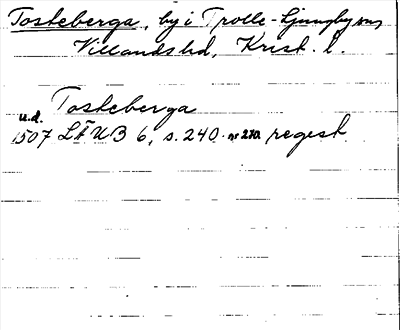 Tosteberga, by i Trolle-Ljungby sn,
Villands hd, Krist. l.
Tosteberga
u.d.
1507 LÄUB 6, s. 240. nr 270. regest